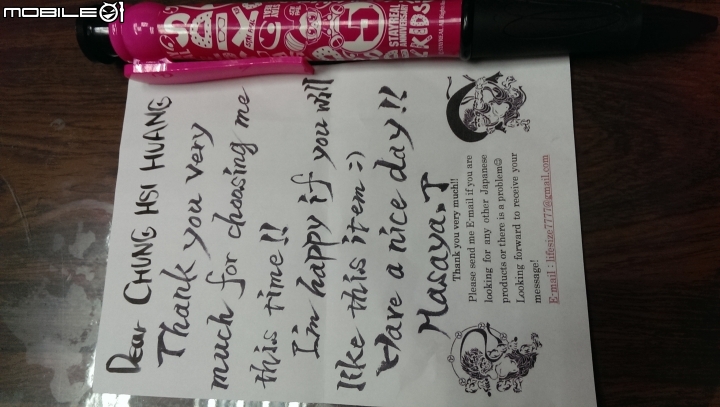 MOBILE01
Dear CHUNG HSI HUANG
Thank you very
much for choosing me
this time!!
I'm happy if you will
like this item:)
Have a nice day!!
Masaya.T
Thank you very much!!
Please send me E-mail if you are
looking for any other Japanese
products or there is a problem☺
Looking forward to receive your
message!
E-mail : lifesize7777@gmail.com
KIDS